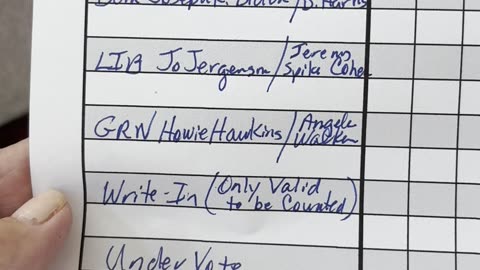 LIB Jo Jergensen/Jeremy Spike Cohen
GRN Howie Hawkins/Angela Walker
Write-In (Only Valid to be Counted)
Under Vote